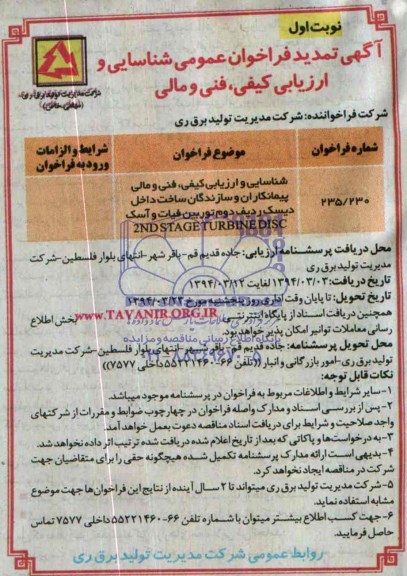 نوبت اول
آگهی تمدید فراخوان عمومی شناسایی و
ارزیابی کیفی، فنی و مالی
شرکت مدیریت تولید برق ری
(سهامی خاص)
شرکت فراخواننده: شرکت مدیریت تولید برق ری
شماره فراخوان
موضوع فراخوان
شرایط و الزامات
ورود به فراخوان
۲۳۵/۲۳۰
شناسایی و ارزیابی کیفی، فنی و مالی
پیمانکاران و سازندگان ساخت داخل
دیسک ردیف دوم توربین فیات و آسک
2ND STAGE TURBINE DISC
محل دریافت پرسشنامه ارزیابی: جاده قدیم قم - باقر شهر - انتهای بلوار فلسطین - شرکت
مدیریت تولید برق ری
تاریخ دریافت: ۱۳۹۴/۰۳/۰۳ لغایت ۱۳۹۴/۰۳/۱۲
تاریخ تحویل: تا پایان وقت اداری روز پنجشنبه مورخ
همچنین دریافت اسناد از پایگاه اینترنتی WWW.TAVANIR.ORG.IR بخش اطلاع
رسانی معاملات توانیر امکان پذیر خواهد بود.
محل تحویل پرسشنامه: جاده قدیم قم - باقر شهر - انتهای بلوار فلسطین - شرکت مدیریت
تولید برق ری - امور بازرگانی و انبار ((تلفن ۶۶-۵۵۲۲۱۴۶۰ داخلی ۷۵۷۷))
نکات قابل توجه:
۱- سایر شرایط و اطلاعات مربوط به فراخوان در پرسشنامه موجود میباشد.
۲- پس از بررسی اسناد و مدارک واصله فراخوان در چهارچوب ضوابط و مقررات از شرکتهای
واجد صلاحیت و شرایط برای دریافت اسناد مناقصه دعوت بعمل خواهد آمد.
۳- به درخواست‌ها و پاکاتی که بعد از تاریخ اعلام شده دریافت شده ترتیب اثر داده نخواهد شد.
۴- بدیهی است ارائه مدارک پرسشنامه تکمیل شده هیچگونه حقی را برای متقاضیان جهت
شرکت در مناقصه ایجاد نخواهد کرد.
۵- شرکت مدیریت تولید برق ری میتواند تا ۲ سال آینده از نتایج این فراخوان ها جهت موضوع
مشابه استفاده نماید.
۶- جهت کسب اطلاع بیشتر میتوان با شماره تلفن ۶۶-۵۵۲۲۱۴۶۰ داخلی ۷۵۷۷ تماس
حاصل فرمایید.
روابط عمومی شرکت مدیریت تولید برق ری